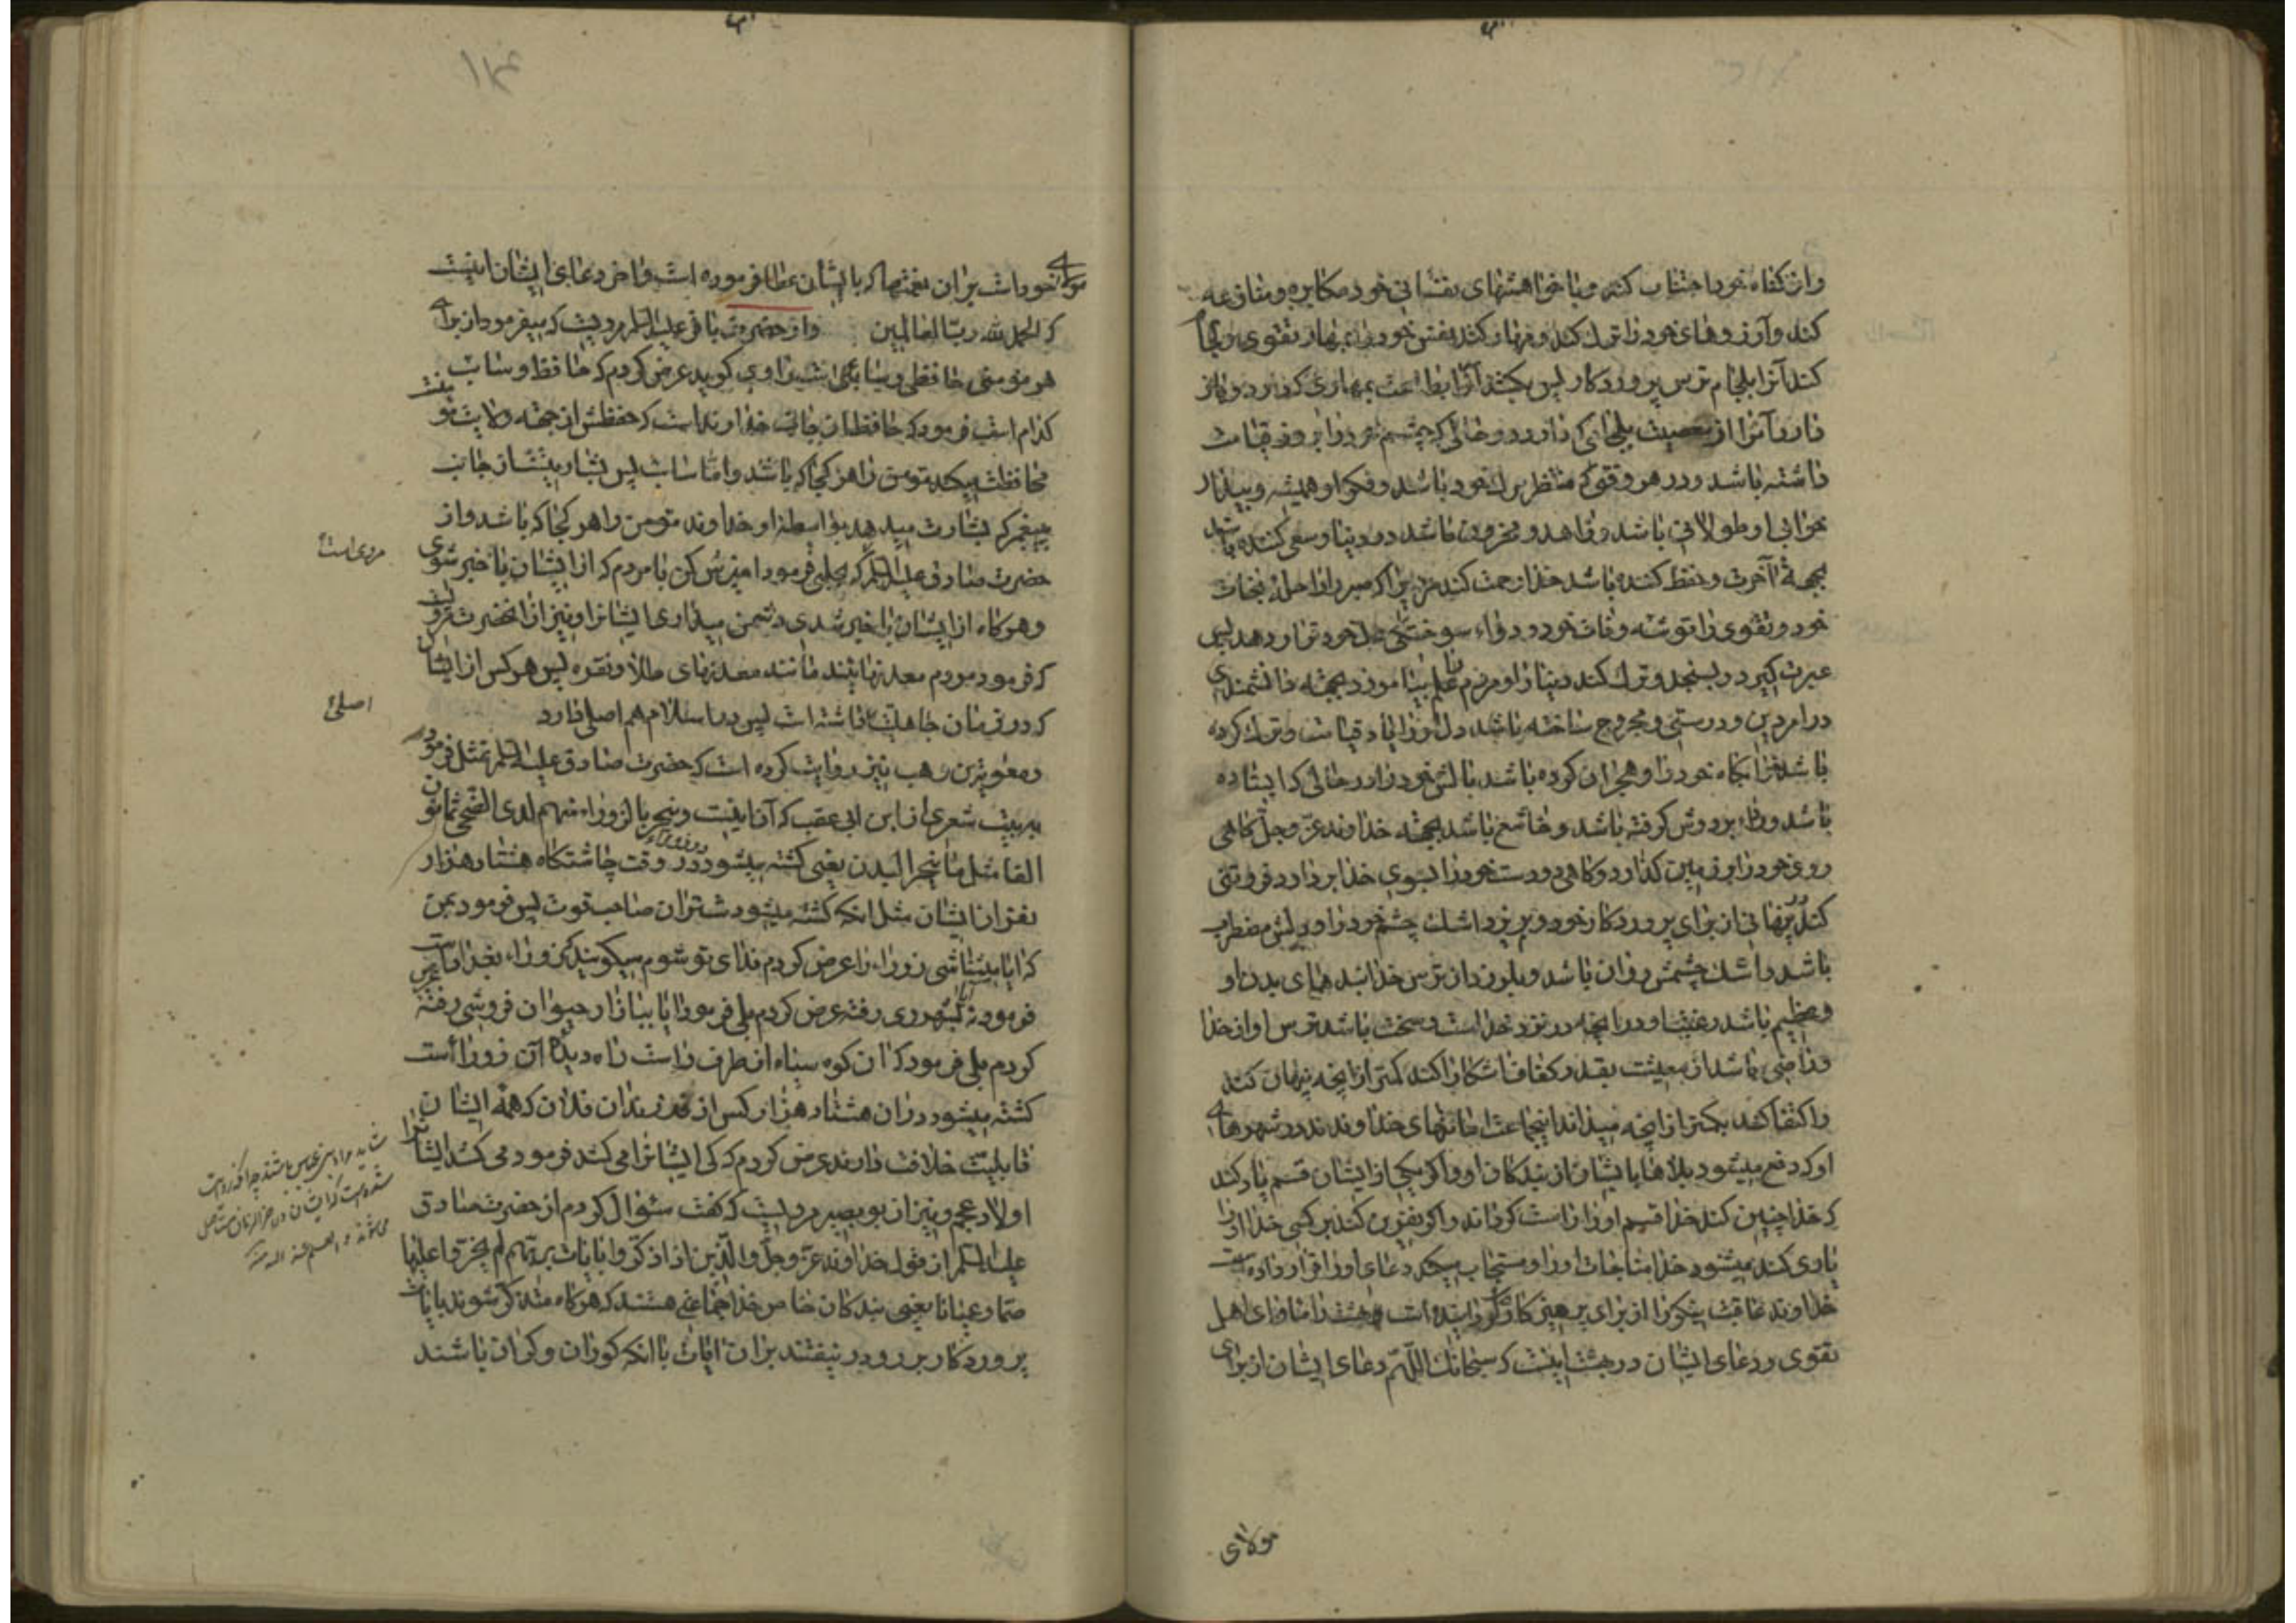 واز کناه خود اجتناب کند و با خواهشهای نفسانی خود مکابره و منازعه
کند وآرزوهای خود را ترك کند و مهار کند نفس خود را بمهار تقوی ولجام
کند آنرا بلجام ترس پروردکار پس بکشد آنرا بطاعت بمهاری که دارد و باز
دارد آنرا از معصیت بلجامی که دارد و در حالی که چشم خود را بروز قیامت
داشته باشد و در هر وقتی که منتظر مرك خود باشد و فکر او همیشه و بیدار
خوابی او طولانی باشد و زاهد و محزون باشد در دنیا و سعی کننده باشد
بجهة آخرت و حفظ کننده باشد خدا رحمت کند مردیرا که صبر را راحلۀ نجات
خود و تقوی را توشه وفات خود و دواء سوختکی خود قرار دهد پس
عبرت کیرد و بسنجد و ترك کند دنیا را و مردم را و علم بیاموزد بجهة دانشمندی
در امر دین و درستی و مجروح ساخته باشد دل او را یاد قیامت و ترك کرده
باشد خوابکاه خود را و هجران کرده باشد بالش خود را در حالی که ایستاده
باشد و رداء بر دوش کرفته باشد و خاشع باشد بجهة خداوند عزّ وجلّ کاهی
روی خود را بر زمین کذارد و کاهی دو دست خود را بسوی خدا بردارد و فروتنی
کند در پنهانی از برای پروردکار خود و بریزد اشك چشم خود را و دلش مضطرب
باشد و اشك چشمش روان باشد و بلرزد از ترس خدا بندهای بدن او
وعظیم باشد رغبت او در انچه در نزد خداست و سخت باشد ترس او از خدا
و راضی باشد از معیشت بقدر کفاف آشکارا کند کمتر از انچه پنهان کند
و اکتفا کند بکمتر از انچه میداند اینجماعت امانتهای خداوندند در شهرهای
او که دفع میشود بلاها بایشان از بندکان او و اکر یکی از ایشان قسم یاد کند
که خدا چنین کند خدا قسم او را راست کرداند و اکر نفرین کند بر کسی خدا او را
یاری کند میشنود خدا مناجات او را و مستجاب میکند دعای او را قرار داده است
خداوند عاقبت نیکو را از برای پرهیز کاران و کردانیده است بهشت را ماوای اهل
تقوی و دعای ایشان در بهشت اینست که سبحانك اللّهمّ دعای ایشان از برای
مولای
۱۲۴
مولای خود است بر ان نعمتها که بایشان عطا فرموده است و اخر دعای ایشان اینست
که الحمد لله ربّ العالمین واز حضرت باقر علیه السلم مرویست که میفرمود از برای
هر مؤمنی حافظی و سایبی است راوی کوید عرض کردم که حافظ و سایب
کدام است فرمود که حافظ از جانب خداوند است که حفظش از جهة ولایت تو
محافظت میکند مؤمن را هر کجا که باشد و اما سایب پس بشارتیست از جانب
پیغمبر که بشارت میدهد بواسطه او خداوند مؤمن را هر کجا که باشد و از
حضرت صادق علیه السلم که بحلبی فرمود امیزش کن با مردم که از ایشان با خبر شوی
مروی است
وهر کاه از ایشان با خبر شدی دشمن میداری ایشانرا و نیز از انحضرت مرویست
که فرمود مردم معدنهایند مانند معدنهای طلا و نقره پس هر کس از ایشان
که در زمان جاهلیت داشته است پس در اسلام هم اصلی دارد
اصلی
ومعویة بن وهب نیز روایت کرده است که حضرت صادق علیه السلم تمثل فرمود
به بیت شعری از ابن ابی عقب که آن اینست وینحر بالزوراء منهم لدی الضّحی ثمانون
الفا مثل ما ینحر البدن یعنی کشته میشود در زوراء در وقت چاشتکاه هشتاد هزار
نفر از ایشان مثل انکه کشته میشود شتران صاحب قوت پس فرمود بمن
که ایا میشناسی زوراء را عرض کردم فدای تو شوم میکویند که زوراء بغداد است
فرمود نه ایا بشهر ری رفتۀ عرض کردم بلی فرمود ایا ببازار حیوان فروشی رفتۀ عرض
کردم بلی فرمود که ان کوه سیاه از طرف راست راه دیدۀ آن زوراء است
کشته میشود در ان هشتاد هزار کس از فرزندان فلان که همه ایشان
قابلیت خلافت دارند عرض کردم که کی ایشانرا می کشد فرمود می کشد ایشانرا
اولاد عجم و نیز از ابو بصیر مرویست که کفت سئوال کردم از حضرت صادق
علیه السلم از قول خداوند عزّ وجلّ والّذین اذا ذکّروا بایات ربّهم لم یخرّوا علیها
صمّا وعمیانا یعنی بندکان خاص خدا جماعتی هستند که هر کاه متذکّر شوند بایات
پروردکار بر رو در نیفتند بران ایات با انکه کوران و کران باشند